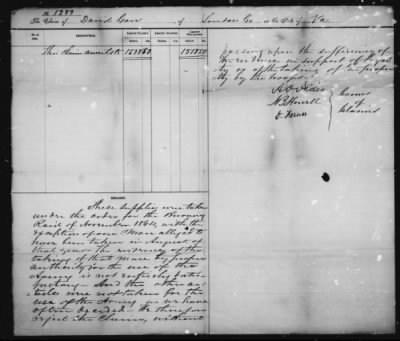 No 1389
The Claim of David Carr of Loudon Co in the State of Va
This Claim amounts to 1518 50 1518 50
REMARKS.
These supplies were taken
under the order for the Burning
Raid of November 1864, with the
exception of one Mare alleged to
have been taken in August of
that year. The evidence of the
taking of that Mare by proper
authority for the use of the
Army is not entirely satis-
factory. And the other ar-
ticles were not taken for the
use of the Army as we have
often decided. We therefore
reject the Claim, without
passing upon the sufficiency of
the evidence in support of loyal-
ty or of the taking of
by the troops.
A. O. Aldis
J. B. Howell
O. Ferriss
Comrs
of
Claims